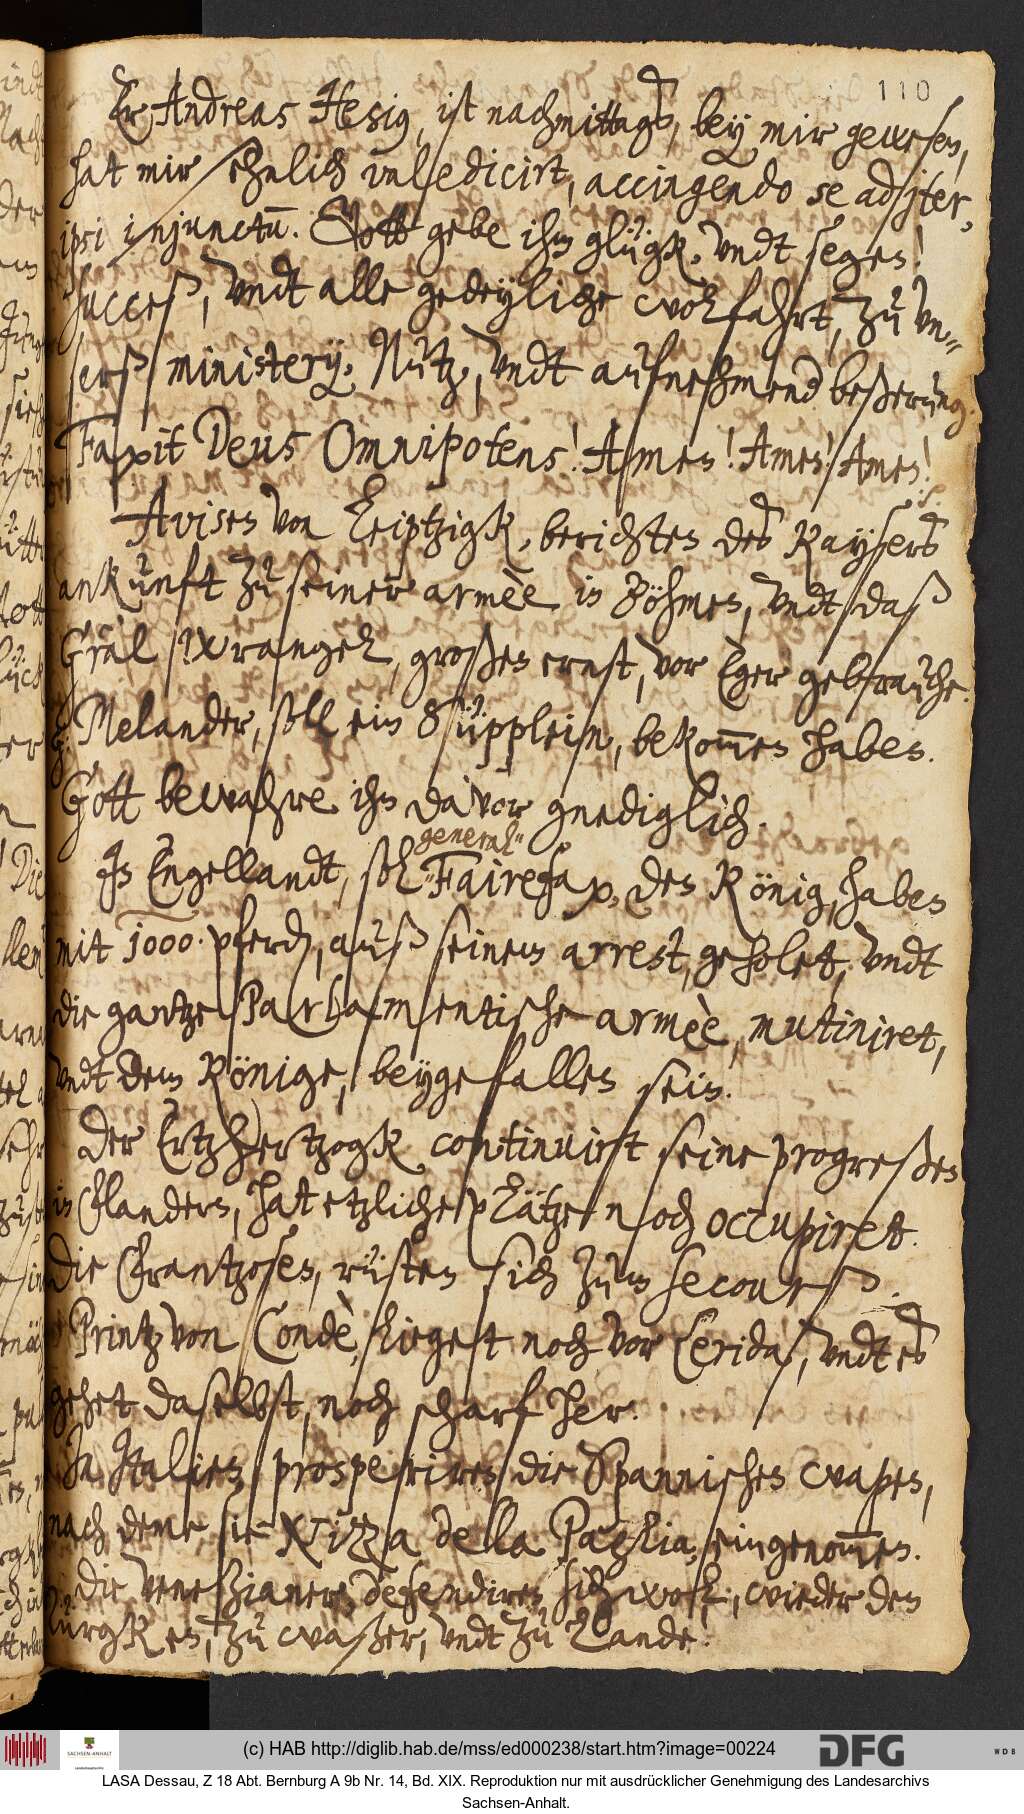 110
Er Andreas Hesius, ist nachmittagß, bey mir gewesen,
hat mir ehrlich valedicirt, accingendo se ad iter,
ipsi injunctū. Gott gebe ihm glügk, undt segen!
Succeß, undt alle gedeyliche wolfahrt, zu un-
serß ministerij, Nutz, undt aufnehmend beßerung.
Faxit Deus Omnipotens! Amen! Amen! Amen!
Avisen von Leiptzigk, berichten des Kaysers
ankunft zu seiner armèe in Böhmen, undt daß
Gräl Wrangel, großen ernst, vor Eger gebrauche.
G: Melander, soll ein Süpplein, bekom̅en haben.
Gott bewahre ihn davor gnediglich.
general
In Engellandt, sol Fairefax, den König, haben
mit 1000 pferd, auß seinem arrest, geholet, undt
die gantze Parlamentische armèe, mutiniret,
undt dem Könige, beygefallen sein.
Der Ertzhertzogk continuirt seine progreßen
in Flandern, hat etzliche plätze noch occupiret.
Die Frantzosen, rüsten sich zum secourß.
Printz von Condè, lieget noch vor Lerida, undt es
gehet daselbst, noch scharf her.
In Italien, prosperiren die Spannischen wapen,
nach deme sie Nizza della Paglia, eingenom̅en.
Die Venetzianer, defendiren sich wol, wieder den
Türgken, zu waßer, undt zu Lande.
(c) HAB http://diglib.hab.de/mss/ed000238/start.htm?image=00224
DFG
WDB
SACHSEN-ANHALT
LASA Dessau, Z 18 Abt. Bernburg A 9b Nr. 14, Bd. XIX. Reproduktion nur mit ausdrücklicher Genehmigung des Landesarchivs
Sachsen-Anhalt.